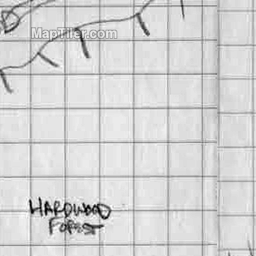 MapTiler.com
HARDWOOD
FOREST